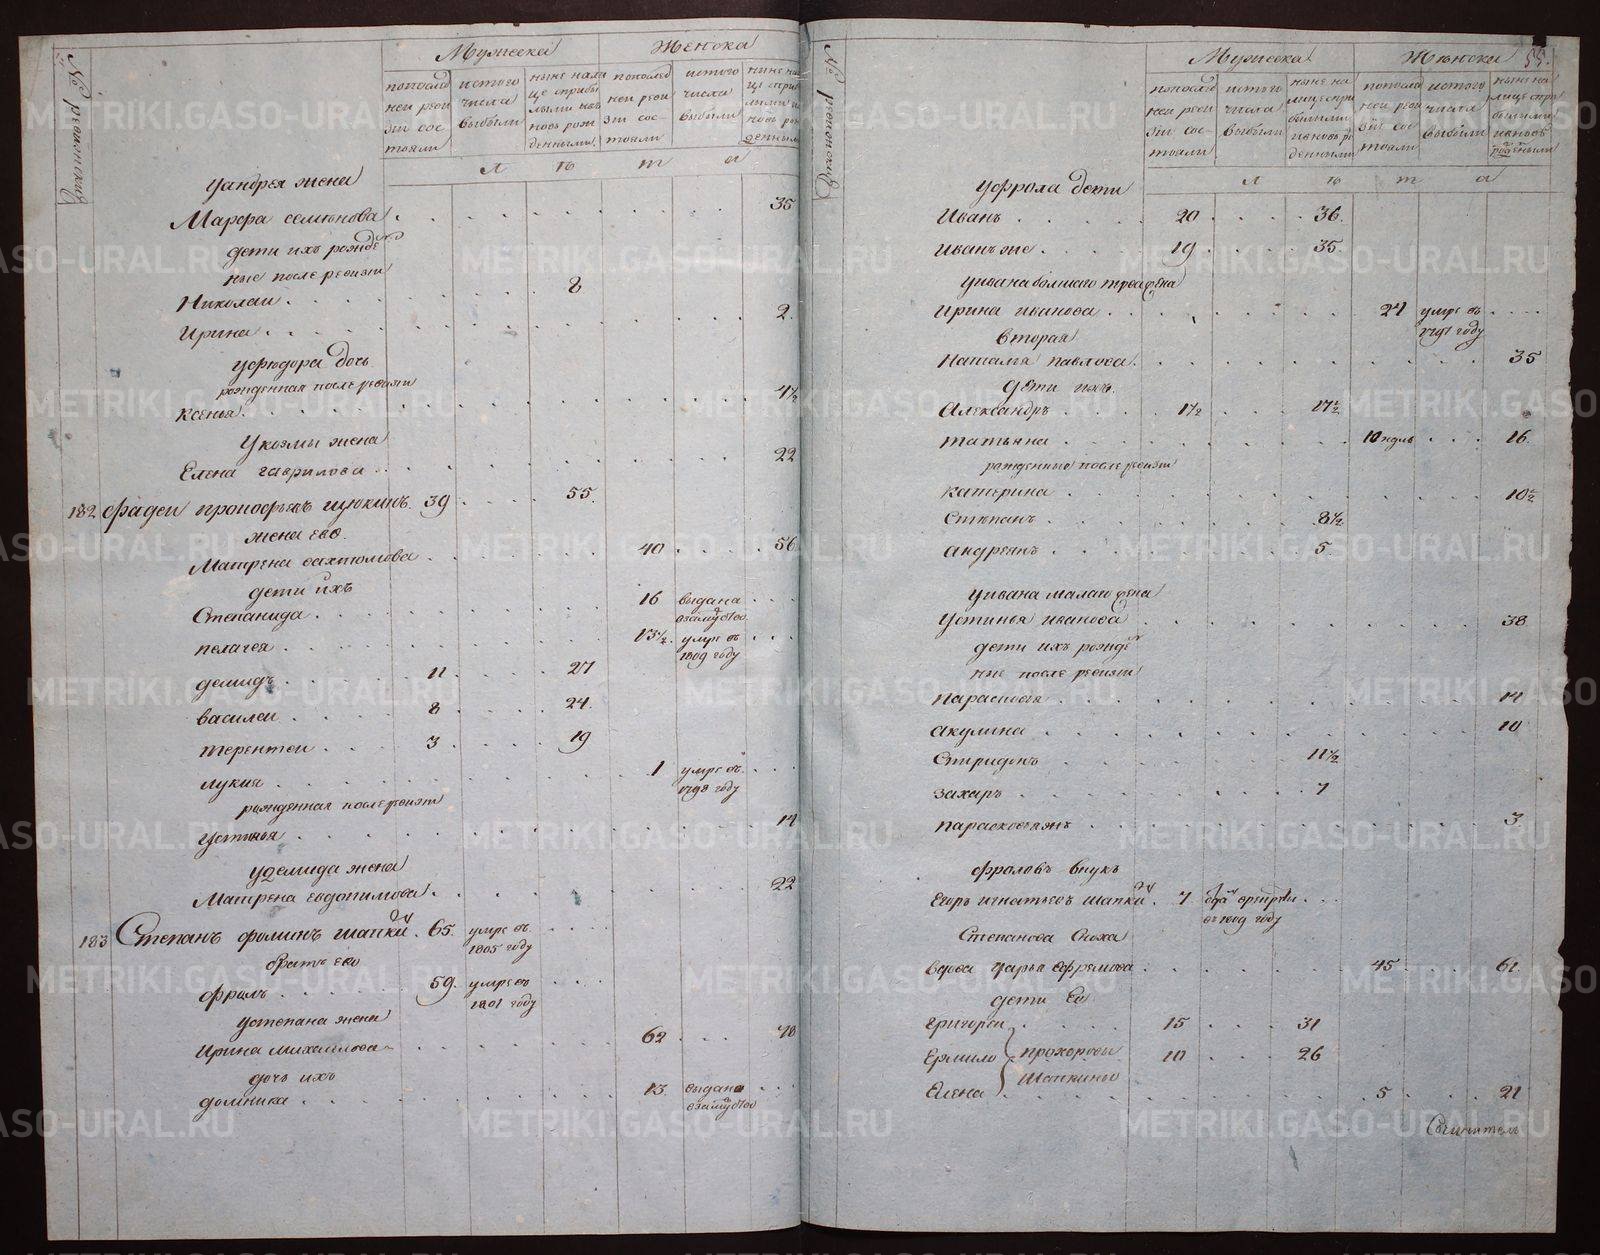 № ревизский
Мужеска
Женска
попослед
ней реви
зіи сос
тояли
истого
числа
выбыли
ныне нали
це сприбы
лыми ивъ
новь рож
денными
попослед
ней реви
зіи сос-
тояли
истого
числа
выбыли
ныне на
новь рож
денными
л ѣ т а
уандрея жена
Марфа семенова 35
дети ихъ рожде
ные после ревизіи
Николаи 8
Ирина 2
уфедора дочь
рожденная после ревизіи
Ксенья 4½
укозмы жена
Елена гаврилова 22
182 Фадеи прокофьевъ щюкинъ 39 55
жена ево
Матрена 40 56
дети ихъ
Степанида 16 выдана
взамуство
пелагея 13½ умре въ
1809 году
демидъ 11 27
василеи 8 24
терентеи 3 19
лукия 1 умре въ
1798 году
рожденная после ревизіи
устинья 14
удемида жена
Матрена евдокимова 22
183 Степанъ фоминъ шапкинъ 65 умре въ
1805 году
братъ ево
фролъ 59 умре въ
1801 году
устепана жена
Ирина михаилова 62 78
дочь ихъ
домника 13 выдана
взамуство
№ ревизский
Мужеска
Женска
55
попослед
ней реви
зіи сос-
тояли
истого
числа
выбыли
ныне на
лице при
былыми
ивновь ро
денными
попосле
ней реви
зіи сос
тояли
истого
числа
выбыли
ныне на
лице спри
былыми
ивновь
роденными
л ѣ т а
уфрола дети
Иванъ 20 36
иванъ же 19 35
уивана болшаго жена
Ирина иванова 24 умре въ
1797 году
вторая
Наталья павлова 35
дети ихъ
Александръ 1½ 17½
татьяна 10 недль 16
рожденные после ревизіи
катерина 10½
Степанъ 8½
андреянъ 5
уивана малаго жена
Устинья иванова 38
дети ихъ рожде
ные после ревизіи
Парасковья 14
акулина 10
Спиридонъ 11½
захаръ 7
парасковья жъ 3
фроловъ внукъ
Егоръ игнатьевъ шапкинъ 7
въ 1809 году
Степанова сноха
вдова дарья ефремова 45 61
дети ея
Григореи 15 31
Ермило прохоровы 10 26
Елена шапкины 5 21